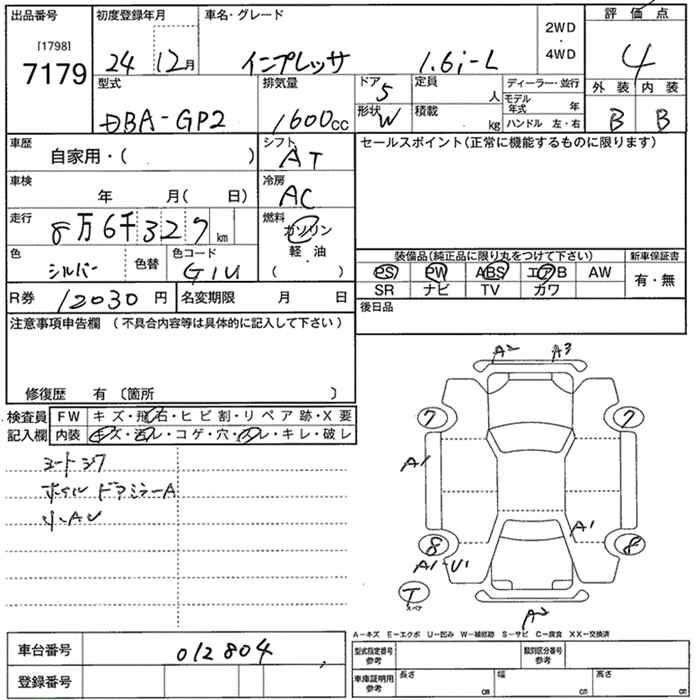 出品番号 初度登録年月 車名・グレード 2WD・4WD 評価点
［1798］
7179 24 12月 インプレッサ 1.6i-L 4
型式 排気量 ドア 5 定員 人 ディーラー・並行 外装 内装
DBA-GP2 1600cc 形状 W 積載 kg モデル年式 年 B B
ハンドル 左・右
車歴 自家用・（ ） シフト AT セールスポイント（正常に機能するものに限ります）
車検 年 月（ 日） 冷房 AC
走行 8万6千327km 燃料 ガソリン・軽油（ ）
色 シルバー 色替 色コード G1U
装備品（純正品に限り丸をつけて下さい） 新車保証書
PS PW ABS エアB AW 有・無
SR ナビ TV カワ
R券 12030円 名変期限 月 日 後日品
注意事項申告欄（不具合内容等は具体的に記入して下さい）
修復歴 有〔箇所 〕
検査員 FW キズ・飛石・ヒビ割・リペア跡・X要
記入欄 内装 キズ・汚レ・コゲ・穴・スレ・キレ・破レ
ホイル ドアミラーA
小AU
A2 A3
7 7
A1
A1
8 8
A1-U1
T
スペア
A2
A－キズ E－エクボ U－凹み W－補修跡 S－サビ C－腐食 XX－交換済
車台番号 012804 型式指定番号 参考 類別区分番号 参考
登録番号 車庫証明用 参考 長さ cm 幅 cm 高さ cm